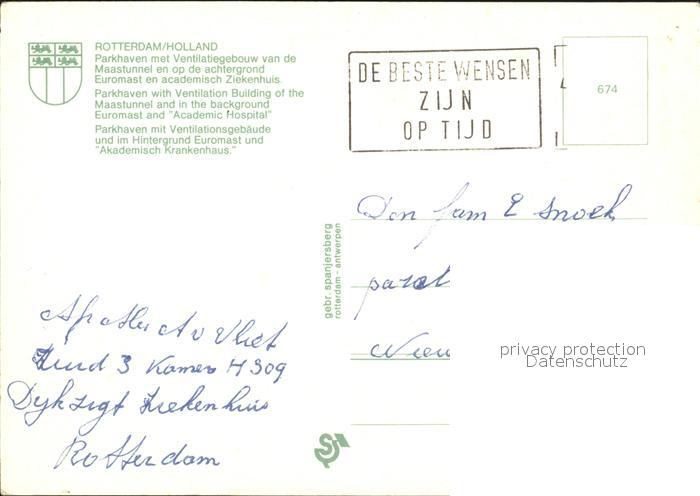 ROTTERDAM/HOLLAND
Parkhaven met Ventilatiegebouw van de
Maastunnel en op de achtergrond
Euromast en academisch Ziekenhuis.
Parkhaven with Ventilation Building of the
Maastunnel and in the background
Euromast and "Academic Hospital"
Parkhaven mit Ventilationsgebäude
und im Hintergrund Euromast und
"Akademisch Krankenhaus."
DE BESTE WENSEN
ZIJN
OP TIJD
674
Den fam E Snoek
gebr. spanjersberg
rotterdam - antwerpen
Nieu
privacy protection
Datenschutz
A v Vliet
3 Kamer H 309
Dykzigt Ziekenhuis
Rotterdam